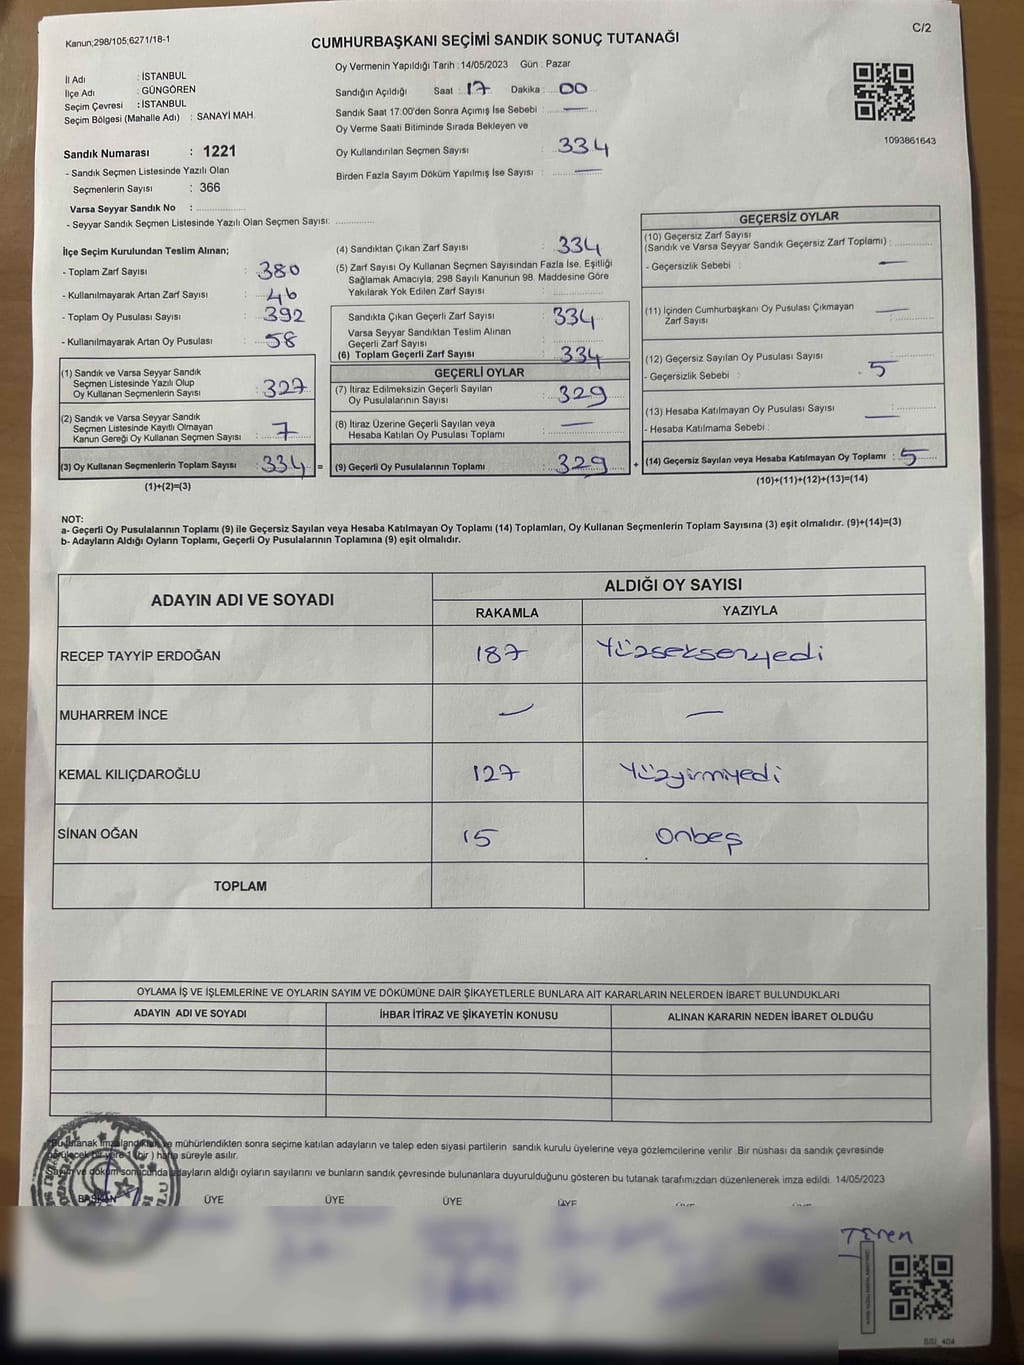 Kanun;298/105;6271/18-1
C/2
CUMHURBAŞKANI SEÇİMİ SANDIK SONUÇ TUTANAĞI
Oy Vermenin Yapıldığı Tarih : 14/05/2023 Gün : Pazar
İl Adı : İSTANBUL
İlçe Adı : GÜNGÖREN
Seçim Çevresi : İSTANBUL
Seçim Bölgesi (Mahalle Adı) : SANAYİ MAH.
Sandığın Açıldığı Saat : 17 Dakika : 00
Sandık Saat 17:00'den Sonra Açımış İse Sebebi : —
Oy Verme Saati Bitiminde Sırada Bekleyen ve
Oy Kullandırılan Seçmen Sayısı : 334
Birden Fazla Sayım Döküm Yapılmış İse Sayısı : —
1093861643
Sandık Numarası : 1221
- Sandık Seçmen Listesinde Yazılı Olan
Seçmenlerin Sayısı : 366
Varsa Seyyar Sandık No : ....................
- Seyyar Sandık Seçmen Listesinde Yazılı Olan Seçmen Sayısı: ................
İlçe Seçim Kurulundan Teslim Alınan;
- Toplam Zarf Sayısı : 380
- Kullanılmayarak Artan Zarf Sayısı : 46
- Toplam Oy Pusulası Sayısı : 392
- Kullanılmayarak Artan Oy Pusulası : 58
(1) Sandık ve Varsa Seyyar Sandık
Seçmen Listesinde Yazılı Olup
Oy Kullanan Seçmenlerin Sayısı : 327
(2) Sandık ve Varsa Seyyar Sandık
Seçmen Listesinde Kayıtlı Olmayan
Kanun Gereği Oy Kullanan Seçmen Sayısı : 7
(3) Oy Kullanan Seçmenlerin Toplam Sayısı : 334 =
(1)+(2)=(3)
(4) Sandıktan Çıkan Zarf Sayısı : 334
(5) Zarf Sayısı Oy Kullanan Seçmen Sayısından Fazla İse, Eşitliği
Sağlamak Amacıyla; 298 Sayılı Kanunun 98. Maddesine Göre
Yakılarak Yok Edilen Zarf Sayısı : ................
Sandıkta Çıkan Geçerli Zarf Sayısı : 334
Varsa Seyyar Sandıktan Teslim Alınan
Geçerli Zarf Sayısı : ................
(6) Toplam Geçerli Zarf Sayısı : 334
GEÇERLİ OYLAR
(7) İtiraz Edilmeksizin Geçerli Sayılan
Oy Pusulalarının Sayısı : 329
(8) İtiraz Üzerine Geçerli Sayılan veya
Hesaba Katılan Oy Pusulası Toplamı : —
(9) Geçerli Oy Pusulalarının Toplamı : 329 +
GEÇERSİZ OYLAR
(10) Geçersiz Zarf Sayısı
(Sandık ve Varsa Seyyar Sandık Geçersiz Zarf Toplamı) : ............
- Geçersizlik Sebebi : —
(11) İçinden Cumhurbaşkanı Oy Pusulası Çıkmayan
Zarf Sayısı : —
(12) Geçersiz Sayılan Oy Pusulası Sayısı : 5
- Geçersizlik Sebebi :
(13) Hesaba Katılmayan Oy Pusulası Sayısı : —
- Hesaba Katılmama Sebebi :
(14) Geçersiz Sayılan veya Hesaba Katılmayan Oy Toplamı : 5
(10)+(11)+(12)+(13)=(14)
NOT:
a- Geçerli Oy Pusulalarının Toplamı (9) ile Geçersiz Sayılan veya Hesaba Katılmayan Oy Toplamı (14) Toplamları, Oy Kullanan Seçmenlerin Toplam Sayısına (3) eşit olmalıdır. (9)+(14)=(3)
b- Adayların Aldığı Oyların Toplamı, Geçerli Oy Pusulalarının Toplamına (9) eşit olmalıdır.
ADAYIN ADI VE SOYADI
ALDIĞI OY SAYISI
RAKAMLA YAZIYLA
RECEP TAYYİP ERDOĞAN 187 Yüzseksenyedi
MUHARREM İNCE — —
KEMAL KILIÇDAROĞLU 127 Yüzyirmiyedi
SİNAN OĞAN 15 onbeş
TOPLAM
OYLAMA İŞ VE İŞLEMLERİNE VE OYLARIN SAYIM VE DÖKÜMÜNE DAİR ŞİKAYETLERLE BUNLARA AİT KARARLARIN NELERDEN İBARET BULUNDUKLARI
ADAYIN ADI VE SOYADI İHBAR İTİRAZ VE ŞİKAYETİN KONUSU ALINAN KARARIN NEDEN İBARET OLDUĞU
Bu tutanak imzalandıktan ve mühürlendikten sonra seçime katılan adayların ve talep eden siyasi partilerin sandık kurulu üyelerine veya gözlemcilerine verilir .Bir nüshası da sandık çevresinde
görülecek bir yere 1 (bir ) hafta süreyle asılır.
Sayım ve döküm sonucunda adayların aldığı oyların sayılarını ve bunların sandık çevresinde bulunanlara duyurulduğunu gösteren bu tutanak tarafımızdan düzenlenerek imza edildi. 14/05/2023
BAŞKAN ÜYE ÜYE ÜYE ÜYE